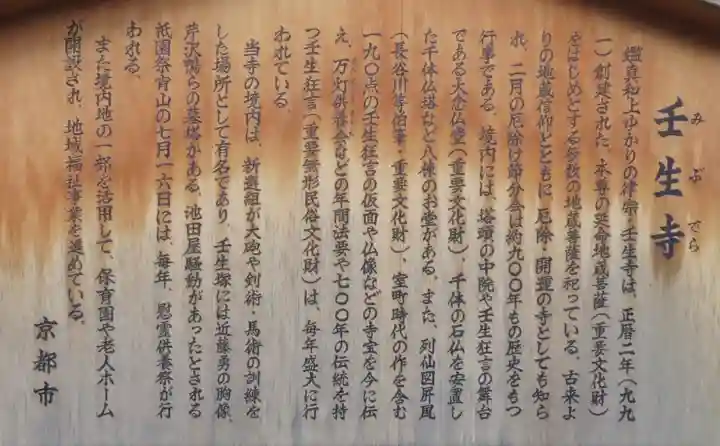 壬生寺
みぶでら
鑑真和上ゆかりの律宗・壬生寺は、正暦二年（九九
一）創建された。本尊の延命地蔵菩薩（重要文化財）
をはじめとする多数の地蔵菩薩を祀っている。古来よ
りの地蔵信仰とともに、厄除・開運の寺としても知ら
れ、二月の厄除け節分会は約九〇〇年もの歴史をもつ
行事である。境内には、塔頭の中院や壬生狂言の舞台
である大念仏堂（重要文化財）、千体の石仏を安置し
た千体仏塔など八棟のお堂がある。また、列仙図屏風
（長谷川等伯筆・重要文化財）、室町時代の作を含む
一九〇点の壬生狂言の仮面や仏像などの寺宝を今に伝
え、万灯供養会などの年間法要や七〇〇年の伝統を持
つ壬生狂言（重要無形民俗文化財）は、毎年盛大に行
われている。
当寺の境内は、新選組が大砲や剣術・馬術の訓練を
した場所として有名であり、壬生塚には近藤勇の胸像、
芹沢鴨らの墓塔がある。池田屋騒動があったとされる
祇園祭宵山の七月一六日には、毎年、慰霊供養祭が行
われる。
また境内地の一部を活用して、保育園や老人ホーム
が開設され、地域福祉事業を進めている。
京都市